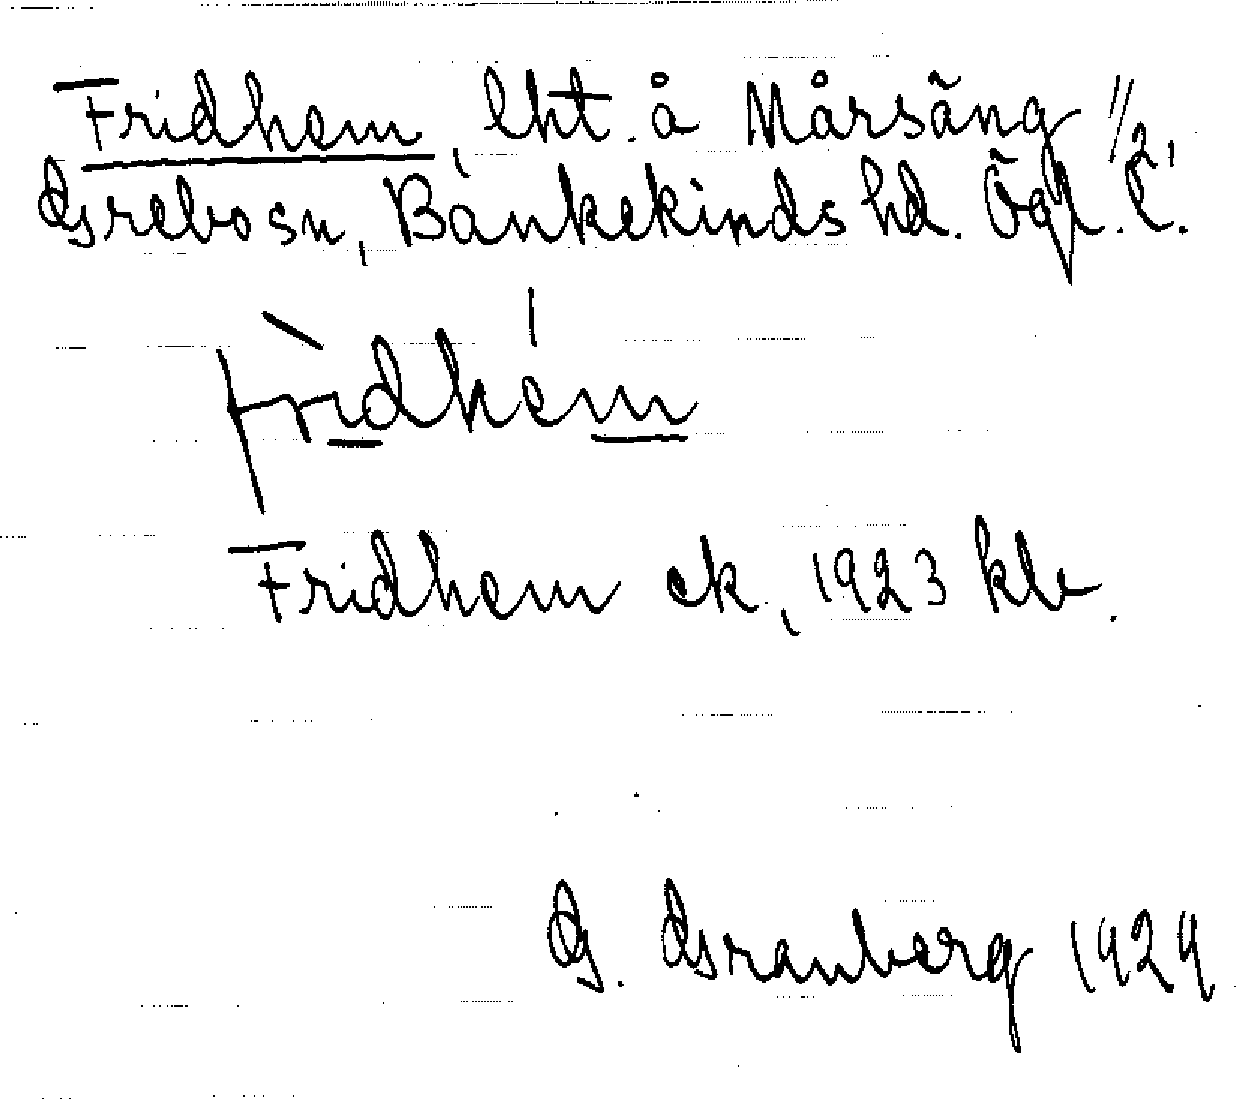 Fridhem, lht. å Mårsäng 1/2,
Grebo sn, Bankekinds hd. Ögl. C.
frìdhém
Fridhem ek., 1923 kbr.
G. Granberg 1929